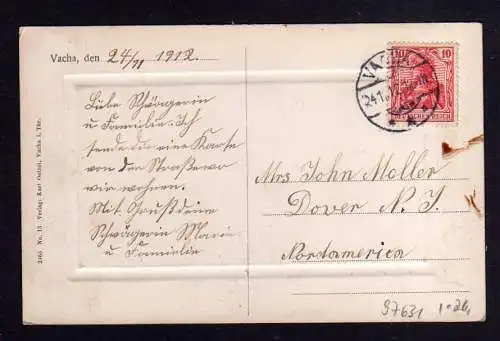 Vacha, den 24/11 1912.
Liebe Schwägerin
u Familie. Ich
sende dir eine Karte
von der Straße wo
wir wohnen.
Mit Gruß deine
Schwägerin Marie
u Familie
3165 No. 13 Verlag: Karl Vacha i. Thr.
VACHA
24.11.12
10 10
DEUTSCHES REICH
Mrs. John Moller
Dover N. J.
Nordamerica
97631